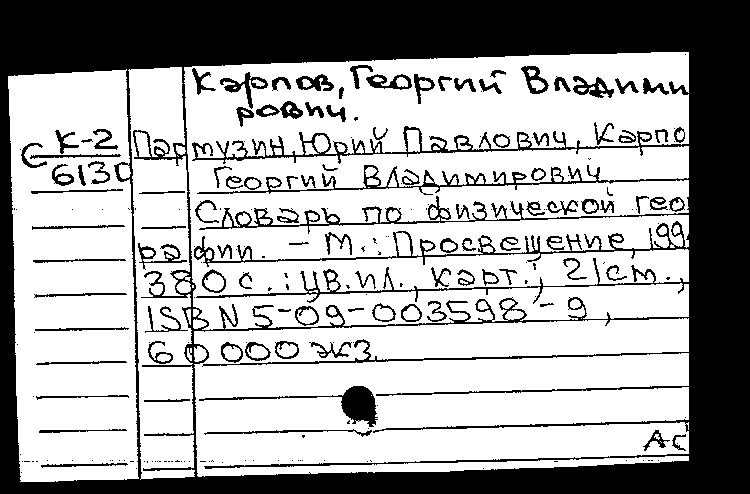 Карпов, Георгий Владими
рович.
С К-2 Пармузин, Юрий Павлович, Карпо
6130 Георгий Владимирович
Словарь по физической геог
рафии. – М.: Просвещение, 199
380 с. : цв. ил., карт.; 21 cm.,
ISBN 5-09-003598-9,
60000 экз.
АС